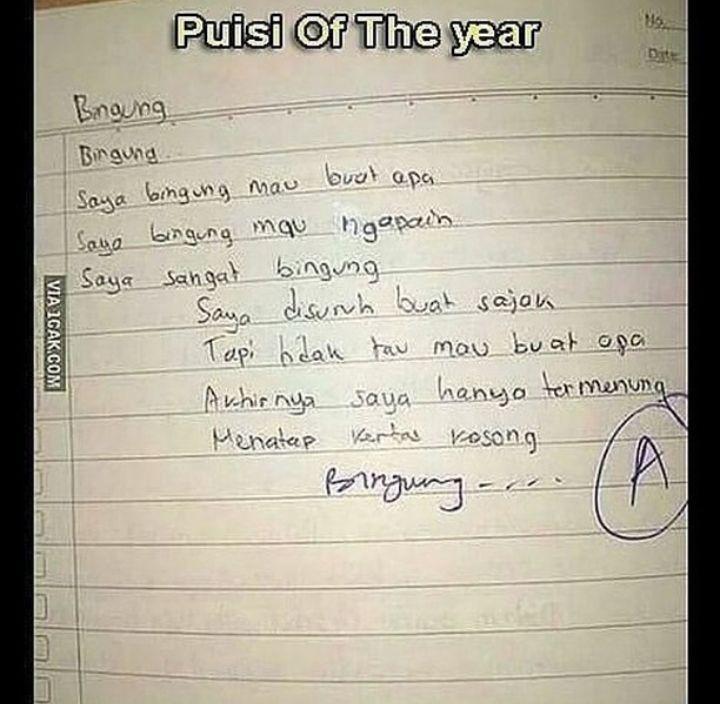 Puisi Of The year
No.
Date
Bingung
Bingung..
Saya bingung mau buat apa
Saya bingung mau ngapain
Saya sangat bingung
Saya disuruh buat sajak
Tapi tidak tau mau buat apa
Akhirnya saya hanya termenung
Menatap kertas kosong
Bingung - ....
A
VIA 1CAK.COM